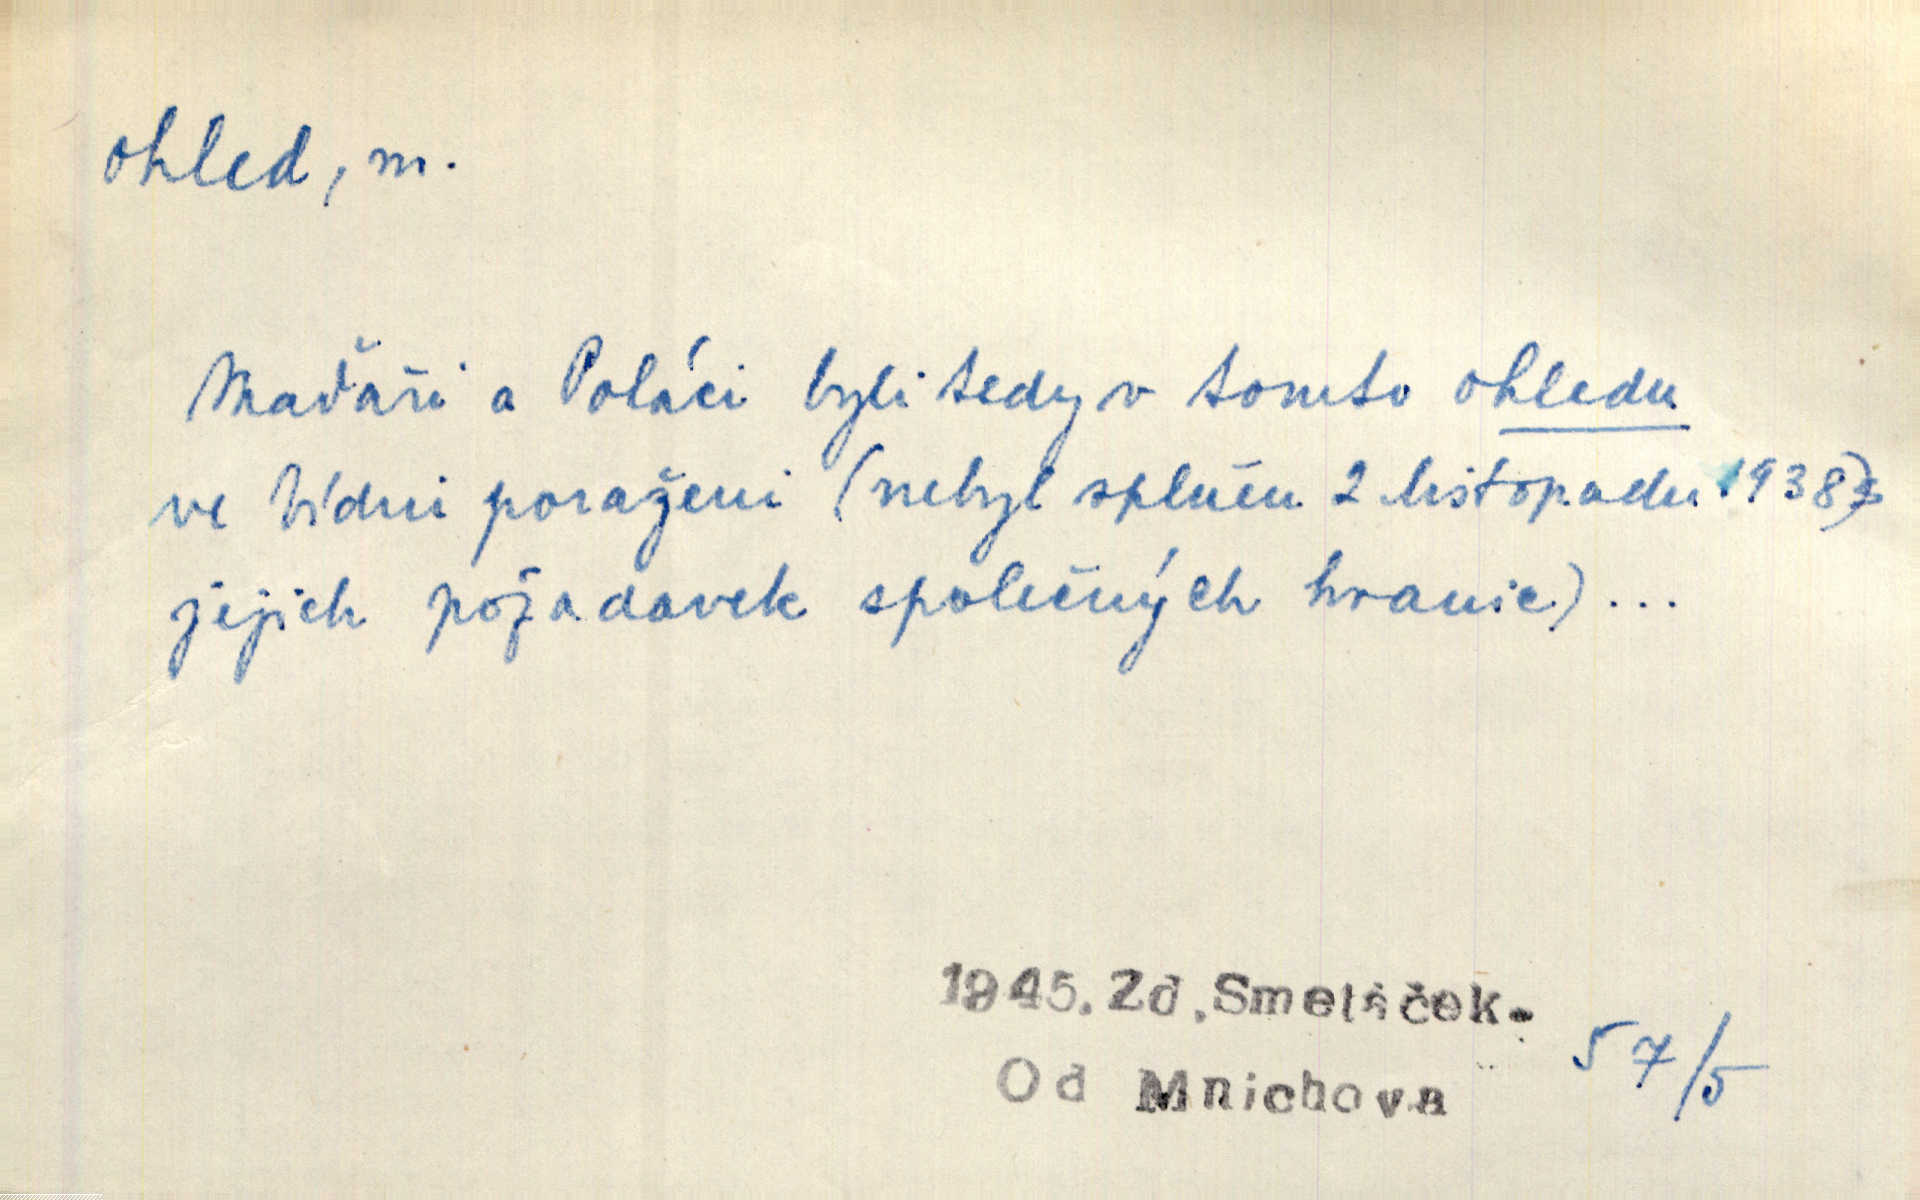 ohled, m.
Maďaři a Poláci byli tedy v tomto ohledu
ve Vídni poraženi (nebyl splněn 2 listopadu 1938
jejich požadavek společných hranic) ...
1945. Zd. Smetáček.
Od Mnichova
57/5